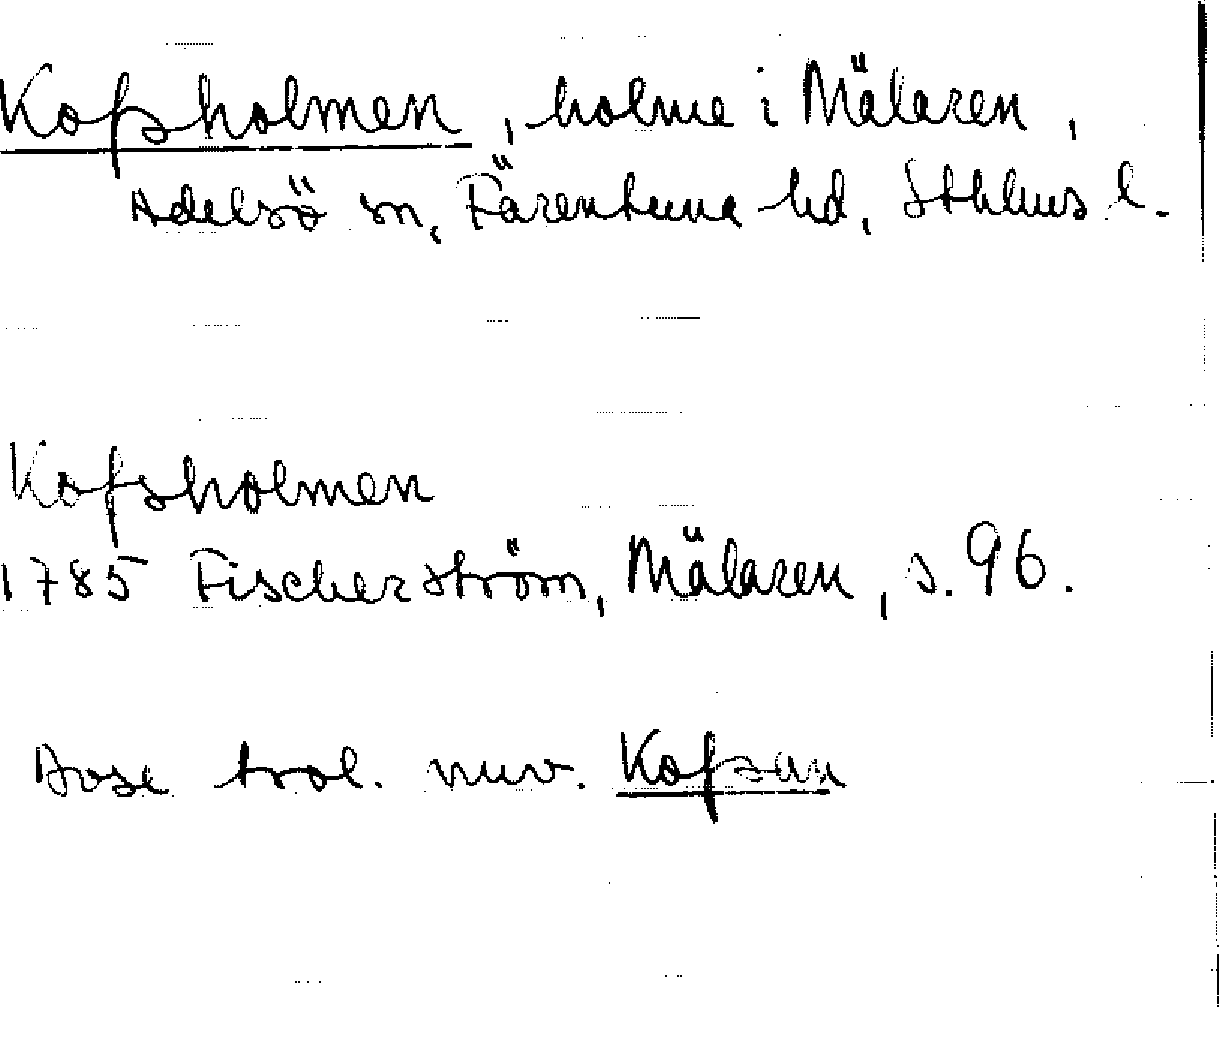 Kofsholmen, holme i Mälaren,
Adelsö sn, Färentuna hd, Sthlms l.
Kofsholmen
1785 Fischerström, Mälaren, s. 96.
Avse trol. nuv. Kofsan